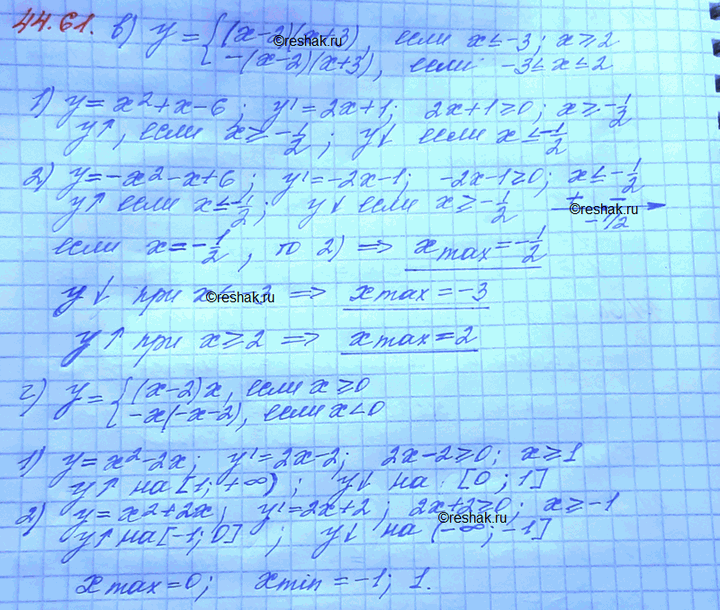 44.61. в) y = { (x-2)(x+3), если x≤-3; x≥2
-(x-2)(x+3), если -3≤x≤2
©reshak.ru
1) y = x²+x-6; y' = 2x+1; 2x+1≥0; x≥-1/2
y↑, если x≥-1/2; y↓ если x≤-1/2
2) y=-x²-x+6; y'=-2x-1; -2x-1≥0; x≤-1/2
y↑ если x≤-1/2; y↓ если x≥-1/2 + - -1/2
©reshak.ru
если x=-1/2, то 2) ⇒ xmax=-1/2
y↓ при x≤-3 ⇒ xmax=-3
©reshak.ru
y↑ при x≥2 ⇒ xmax=2
г) y = { (x-2)x, если x≥0
-x(-x-2), если x<0
1) y=x²-2x; y'=2x-2; 2x-2≥0; x≥1
y↑ на [1;+∞); y↓ на [0;1]
2) y=x²+2x; y'=2x+2; 2x+2≥0; x≥-1
©reshak.ru
y↑ на [-1;0]; y↓ на (-∞;-1]
xmax=0; xmin=-1; 1.